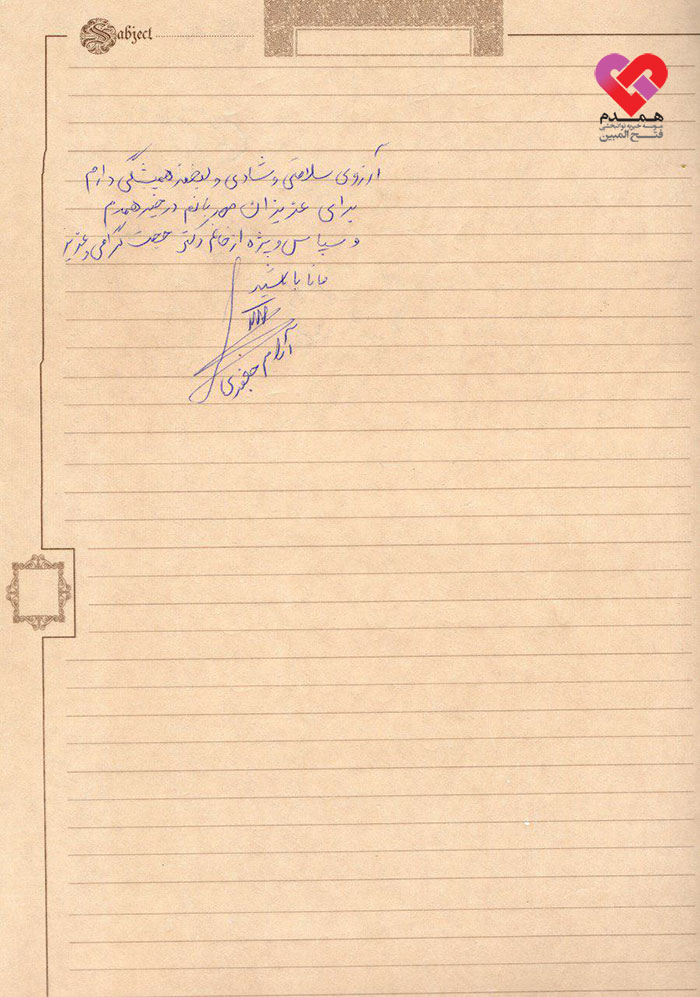 Subject
همدم
موسسه خیریه توانبخشی
فتح المبین
آرزوی سلامتی و شادی و لبخند همیشگی دارم
برای عزیزان مهربانم در خیریه همدم
و سپاس ویژه از خانم دکتر حجت گرامی و عزیز
مانا باشید
آرام جعفری